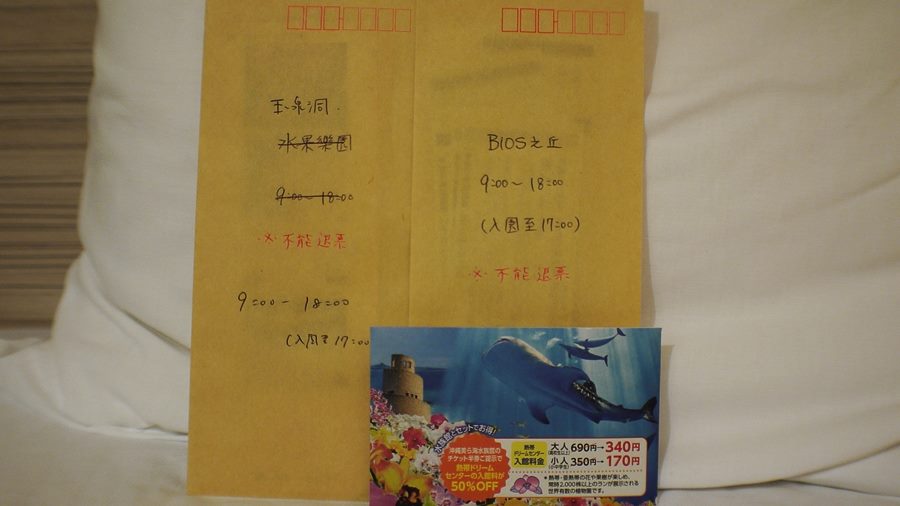 玉泉洞.
水果樂園
9:00~18:00
※不能退票
9:00-18:00
(入園至17:00
BIOS之丘
9:00~18:00
(入園至17:00)
※不能退票
水族館とセットでお得!
沖縄美ら海水族館の
チケット半券ご提示で
熱帯ドリーム
センターの入館料が
50%OFF
熱帯
ドリームセンター
入館料金
大人 690円→340円
(高校生以上)
小人 350円→170円
(小中学生)
●熱帯・亜熱帯の花や果樹が楽しめ、
常時2,000株以上のランが展示される
世界有数の植物園です。